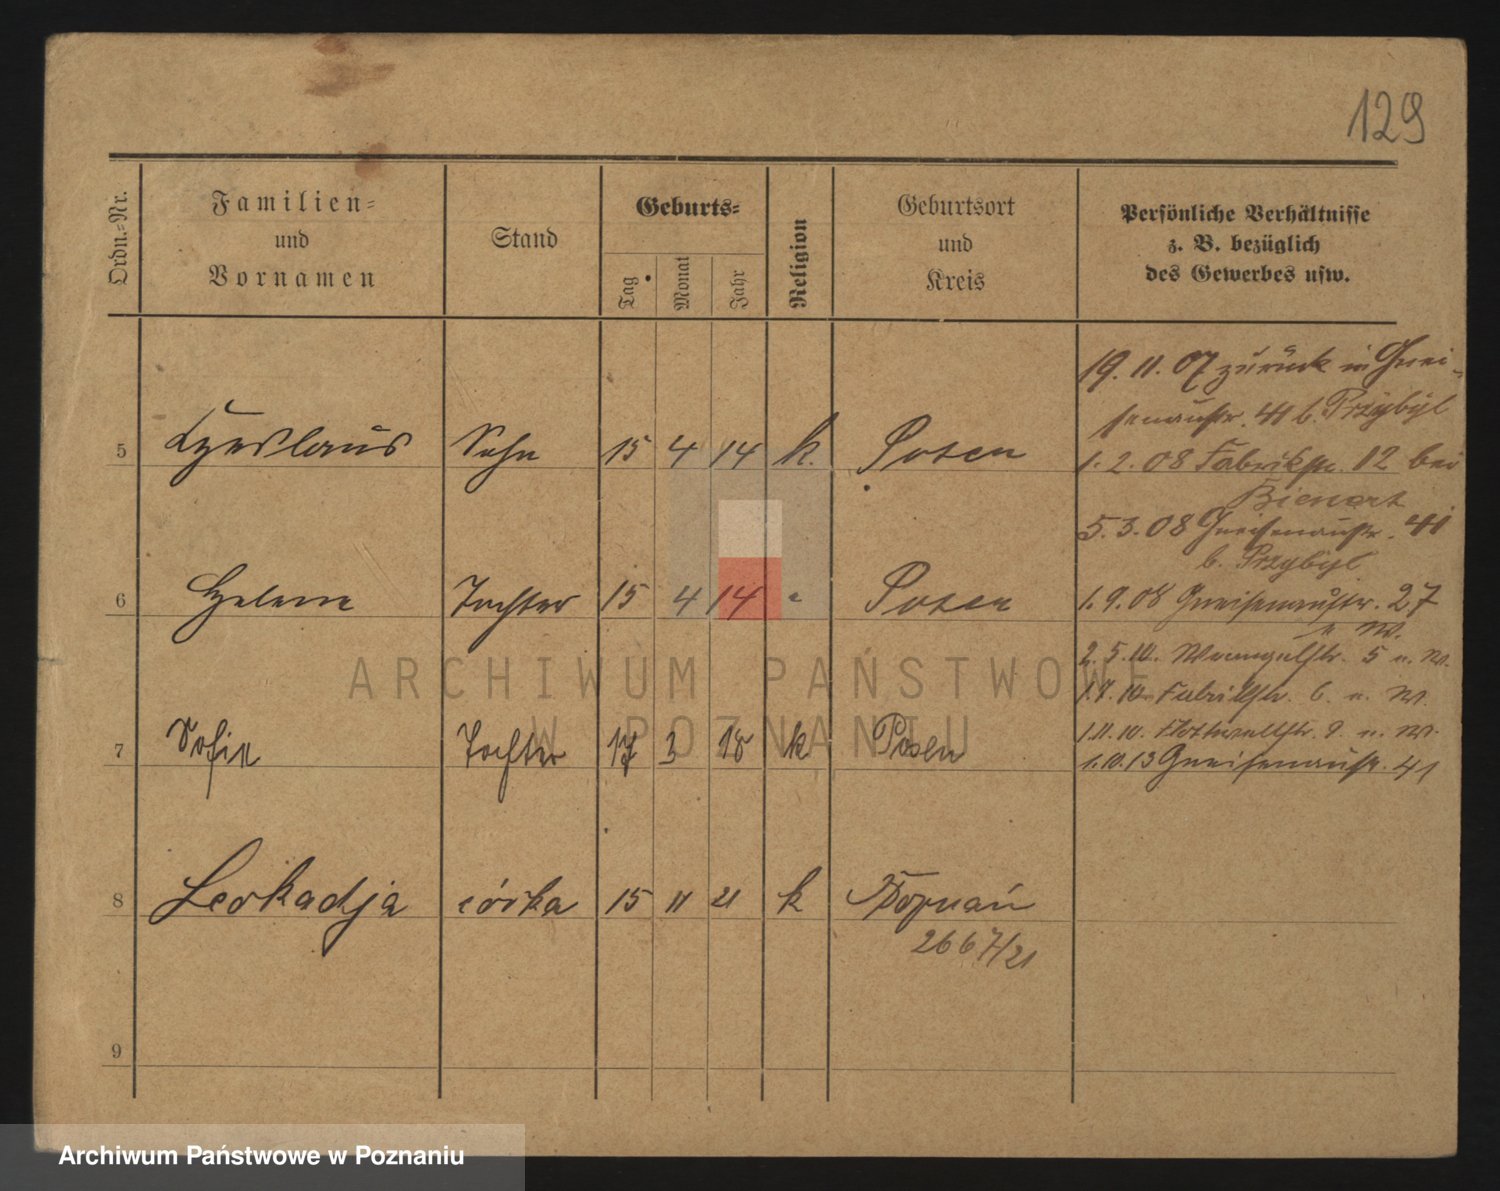 129
Ordn.=Nr.
Familien=
und
Vornamen
Stand
Geburts=
Tag
Monat
Jahr
Religion
Geburtsort
und
Kreis
Persönliche Verhältnisse
z. B. bezüglich
des Gewerbes usw.
5 Czeslaus Sohn 15 4 14 k. Posen
6 Helene Tochter 15 4 14 " Posen
7 Sofie Tochter 17 3 18 k Posen
8 Leokadja córka 15 11 21 k Poznań
2667/21
9
19. 11. 07 zurück in Gnei-
senaustr. 41 b. Przybyl
1. 2. 08 Fabrikstr. 12 bei
Bienert
5. 3. 08 Gneisenaustr. 41
b. Przybyl
1. 9. 08 Gneisenaustr. 27
u. W.
2. 5. 10. Wrangelstr. 5 u. W.
1. 7. 10 Fabrikstr. 6. u. W.
1. 11. 10. Flottwellstr. 9 u. W.
1. 10. 13 Gneisenaustr. 41
ARCHIWUM PAŃSTWOWE
W POZNANIU
Archiwum Państwowe w Poznaniu